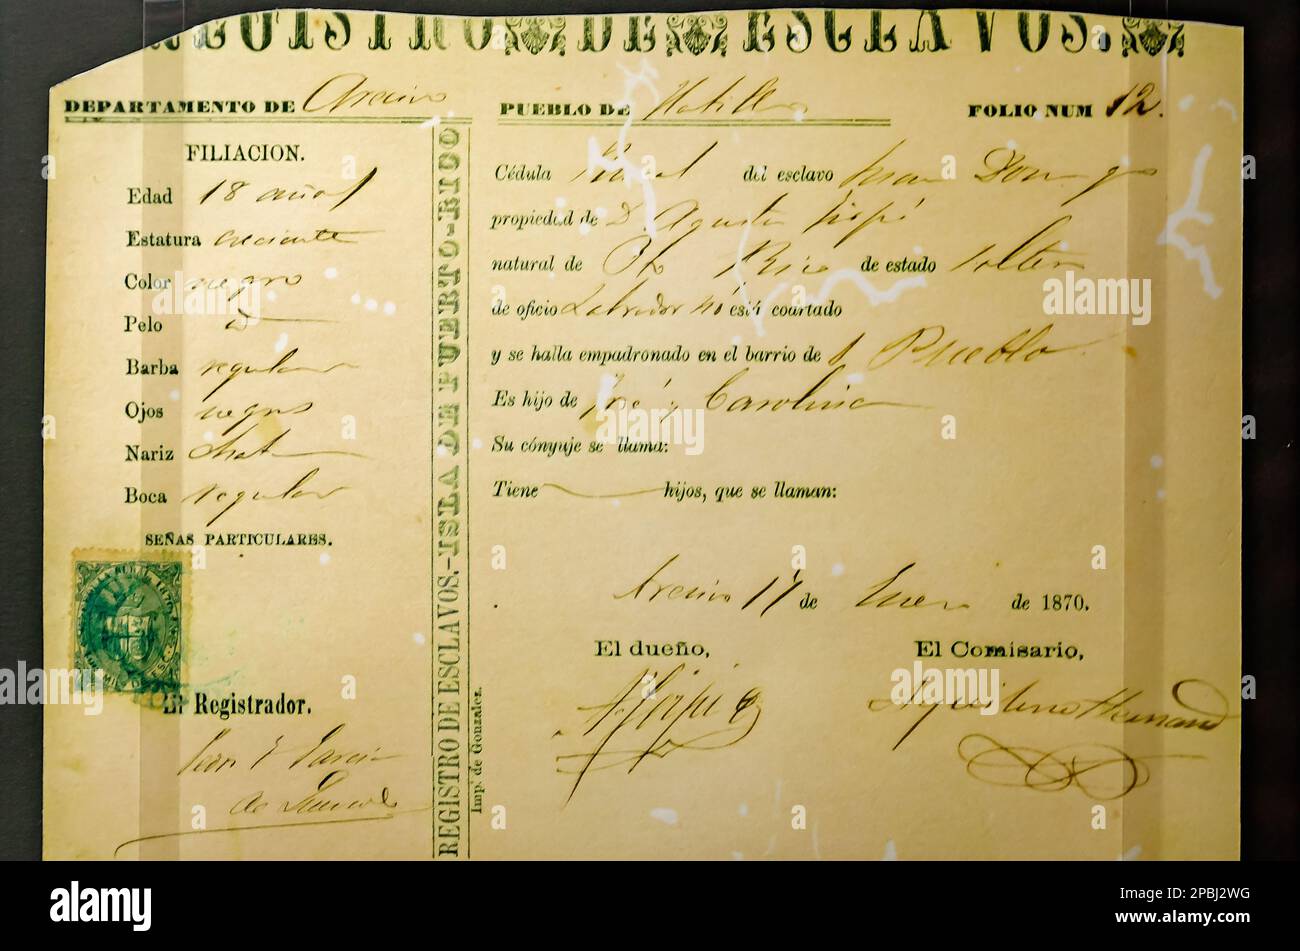 REGISTRO DE ESCLAVOS.
DEPARTAMENTO DE Arecivo
PUEBLO DE Hatillo
FOLIO NUM 12.
FILIACION.
Edad 18 años
Estatura creciente
Color negro
Pelo id
Barba regular
Ojos negros
Nariz chata
Boca regular
SEÑAS PARTICULARES.
El Registrador.
REGISTRO DE ESCLAVOS.-ISLA DE PUERTO-RICO
Imp. de Gonzalez.
Cédula del esclavo Juan Domingo
propiedad de D. Agustin
natural de Pto Rico de estado soltero
de oficio Labrador no está coartado
y se halla empadronado en el barrio de Pueblo
Es hijo de José y Carolina
Su cónyuje se llama:
Tiene hijos, que se llaman:
Arecivo 17 de Enero de 1870.
El dueño,
El Comisario,
Aquilino Hernand
alamy
Image ID: 2PBJ2WG
www.alamy.com